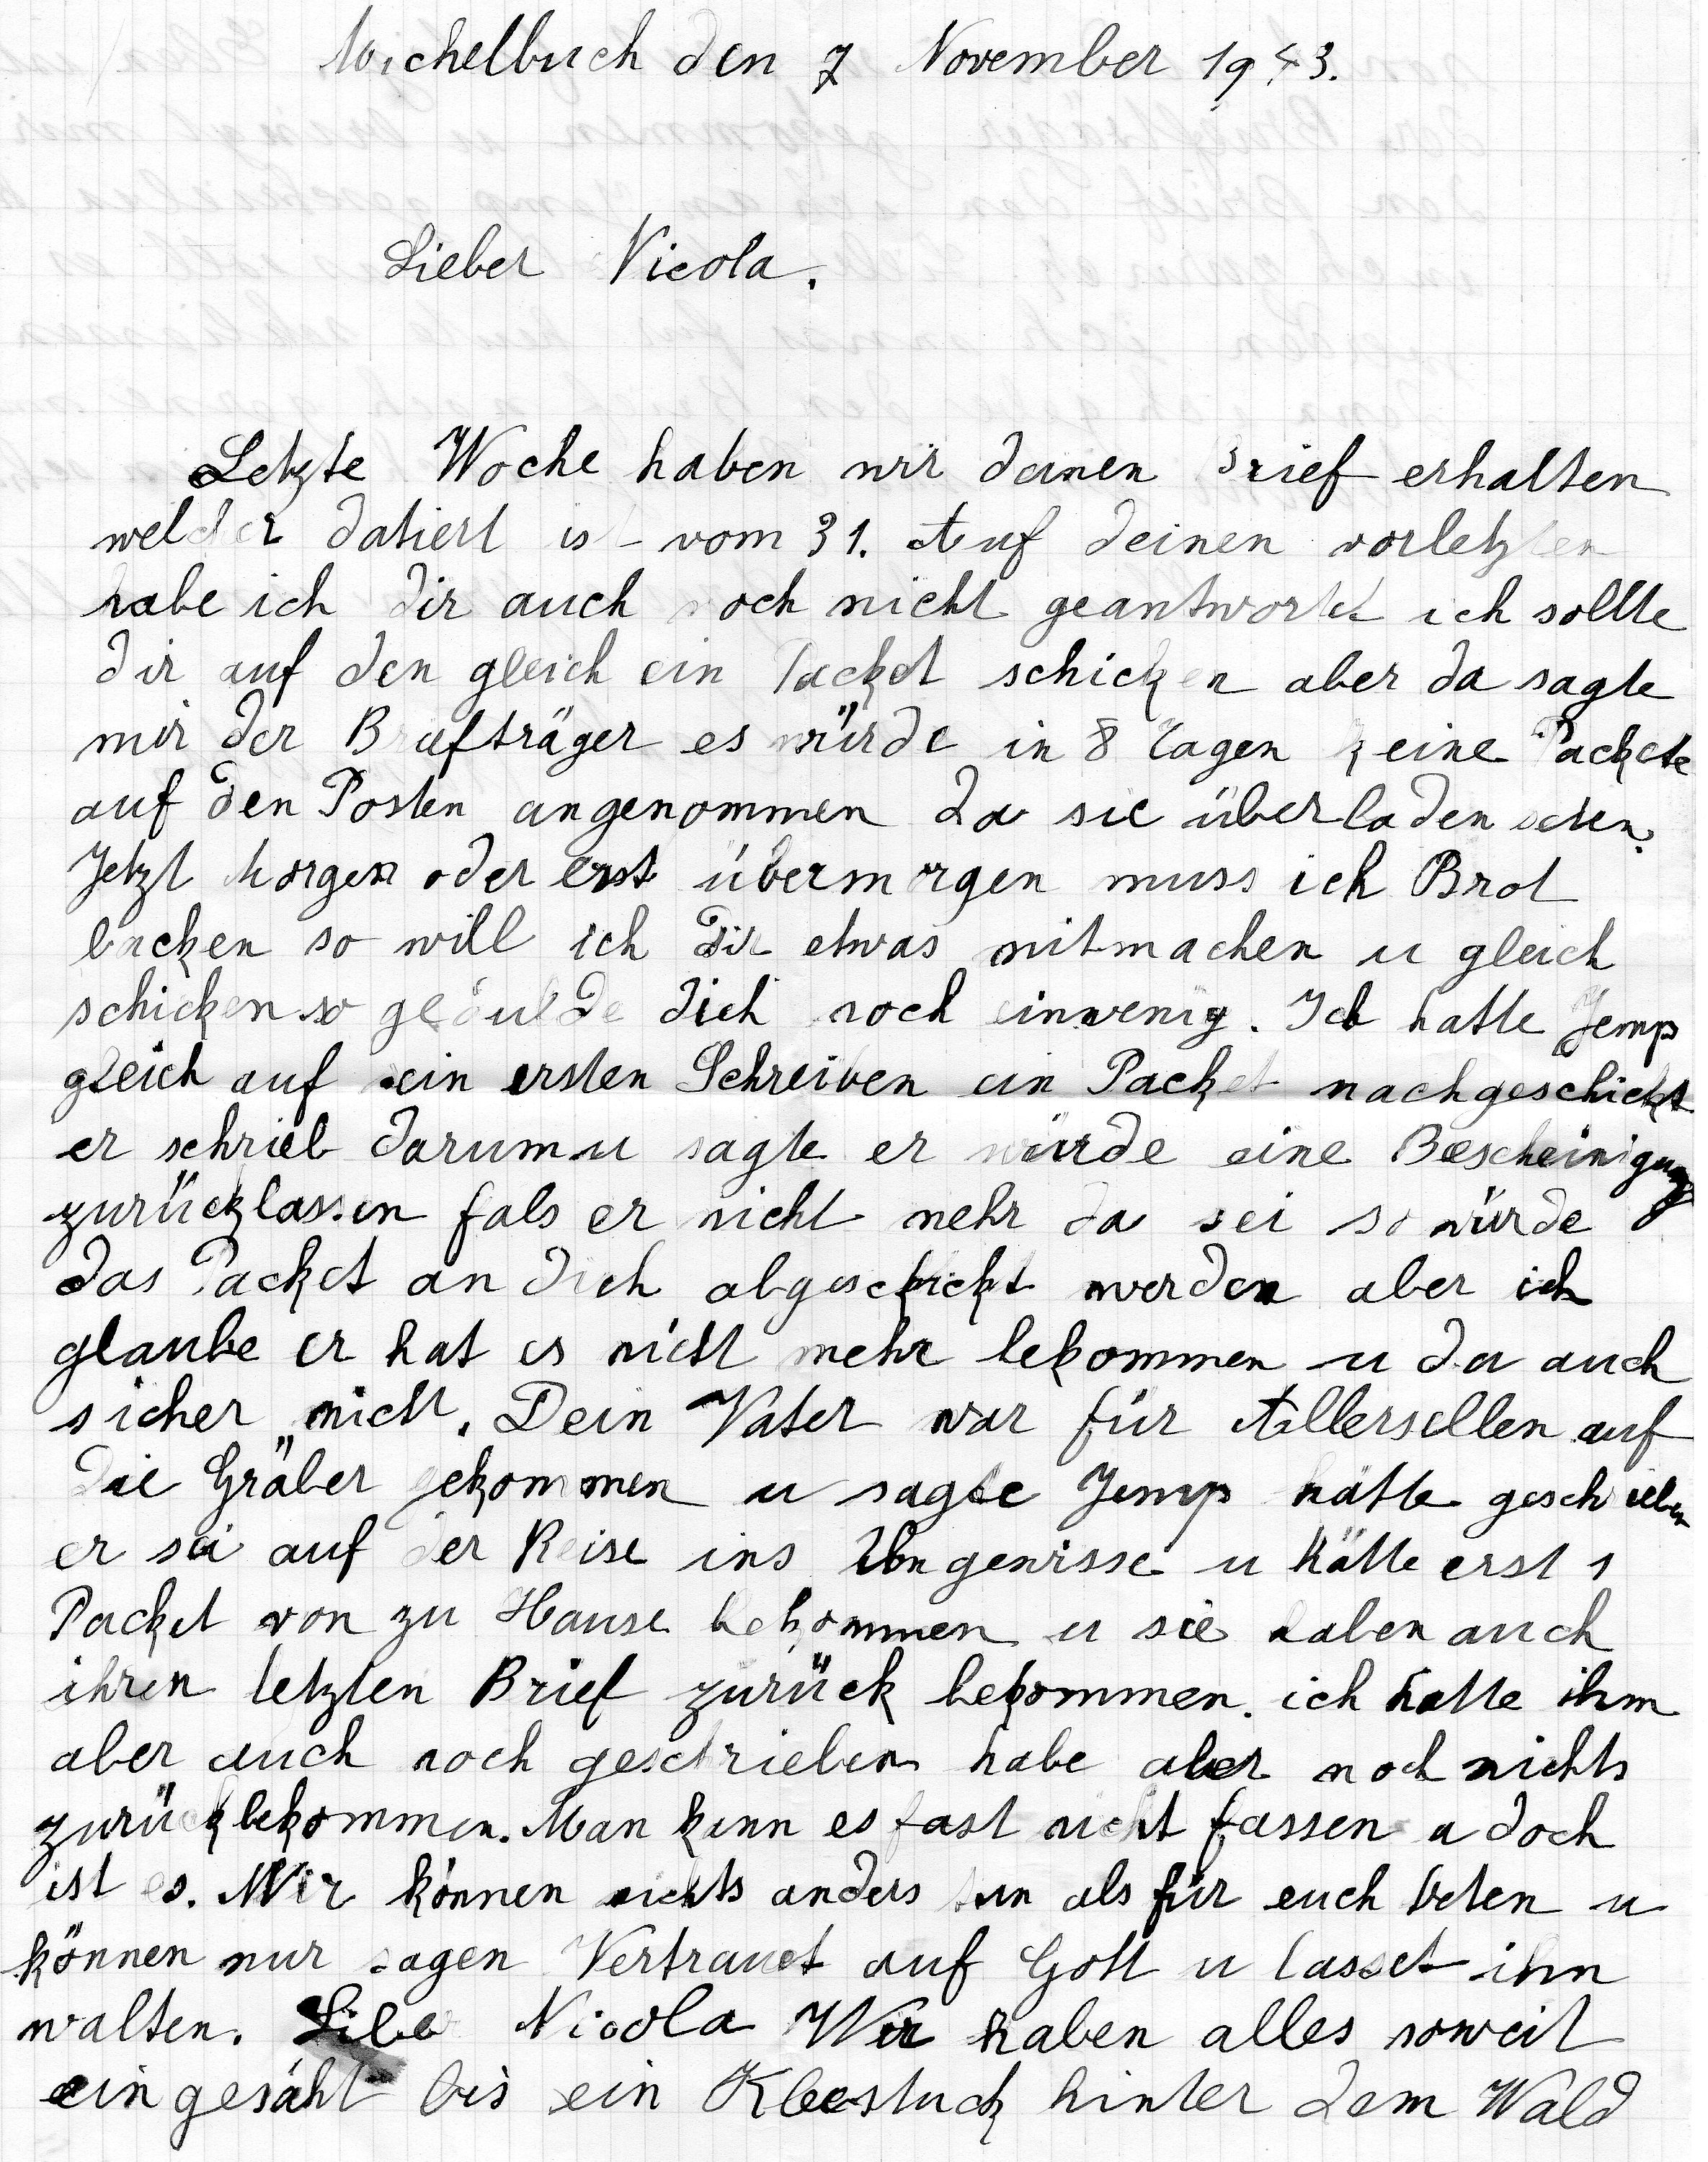 Michelbuch den 7 November 1943.
Lieber Nicola.
Letzte Woche haben wir deinen Brief erhalten
welcher datiert ist vom 31. Auf deinen vorletzten
habe ich dir auch noch nicht geantwortet ich sollte
dir auf den gleich ein Packet schicken aber da sagte
mir der Briefträger es würde in 8 Tagen keine Packete
auf den Posten angenommen da sie überladen seien.
Jetzt Morgen oder erst übermorgen muss ich Brot
backen so will ich Dir etwas mitmachen u gleich
schicken so gedulde dich noch einwenig. Ich hatte Jemp
gleich auf sein ersten Schreiben ein Packet nachgeschickt
er schrieb darum u sagte er würde eine Bescheinigung
zurücklassen fals er nicht mehr da sei so würde
das Packet an dich abgeschickt werden aber ich
glaube er hat es nicht mehr bekommen u du auch
sicher nicht. Dein Vater war für Allersellen auf
die Gräber gekommen u sagte Jemp hätte geschrieben
er sei auf der Reise ins Ungewisse u hätte erst 1
Packet von zu Hause bekommen u sie haben auch
ihren letzten Brief zurück bekommen. ich hatte ihm
aber auch noch geschrieben habe aber noch nichts
zurückbekommen. Man kann es fast nicht fassen u doch
ist es. Wir können nichts anders tun als für euch beten u
können nur sagen Vertrauet auf Gott u lasset ihn
walten. Liber Nicola Wir haben alles soweit
eingesäht bis ein Kleestuck hinter dem Wald